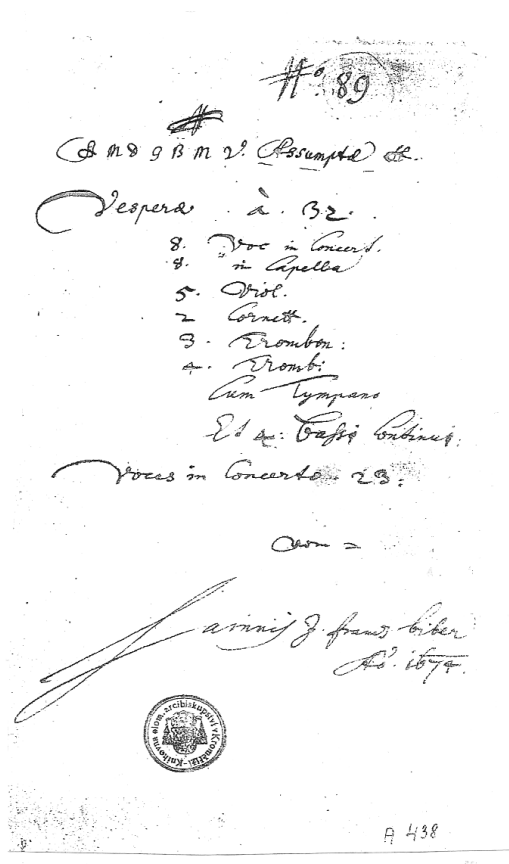 No. 89
A M D G B M V. Assumptæ H.
Vesperæ à 32.
8. Voc in Concert.
8. " in Capella
5. Viol.
2 Cornett.
3. Trombon:
4. Trombi
Cum Tympano
Et 4: Bassis Continuis.
Voces in Concerto 23:
H. Franc Biber
Ao. 1674.
Knihovna olom. arcibiskupství v Kroměříži
A 438